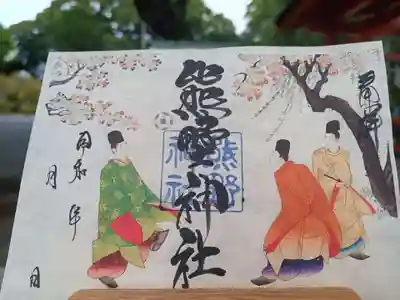 奉拝
熊野神社
熊野
神社
令和 年
月
日